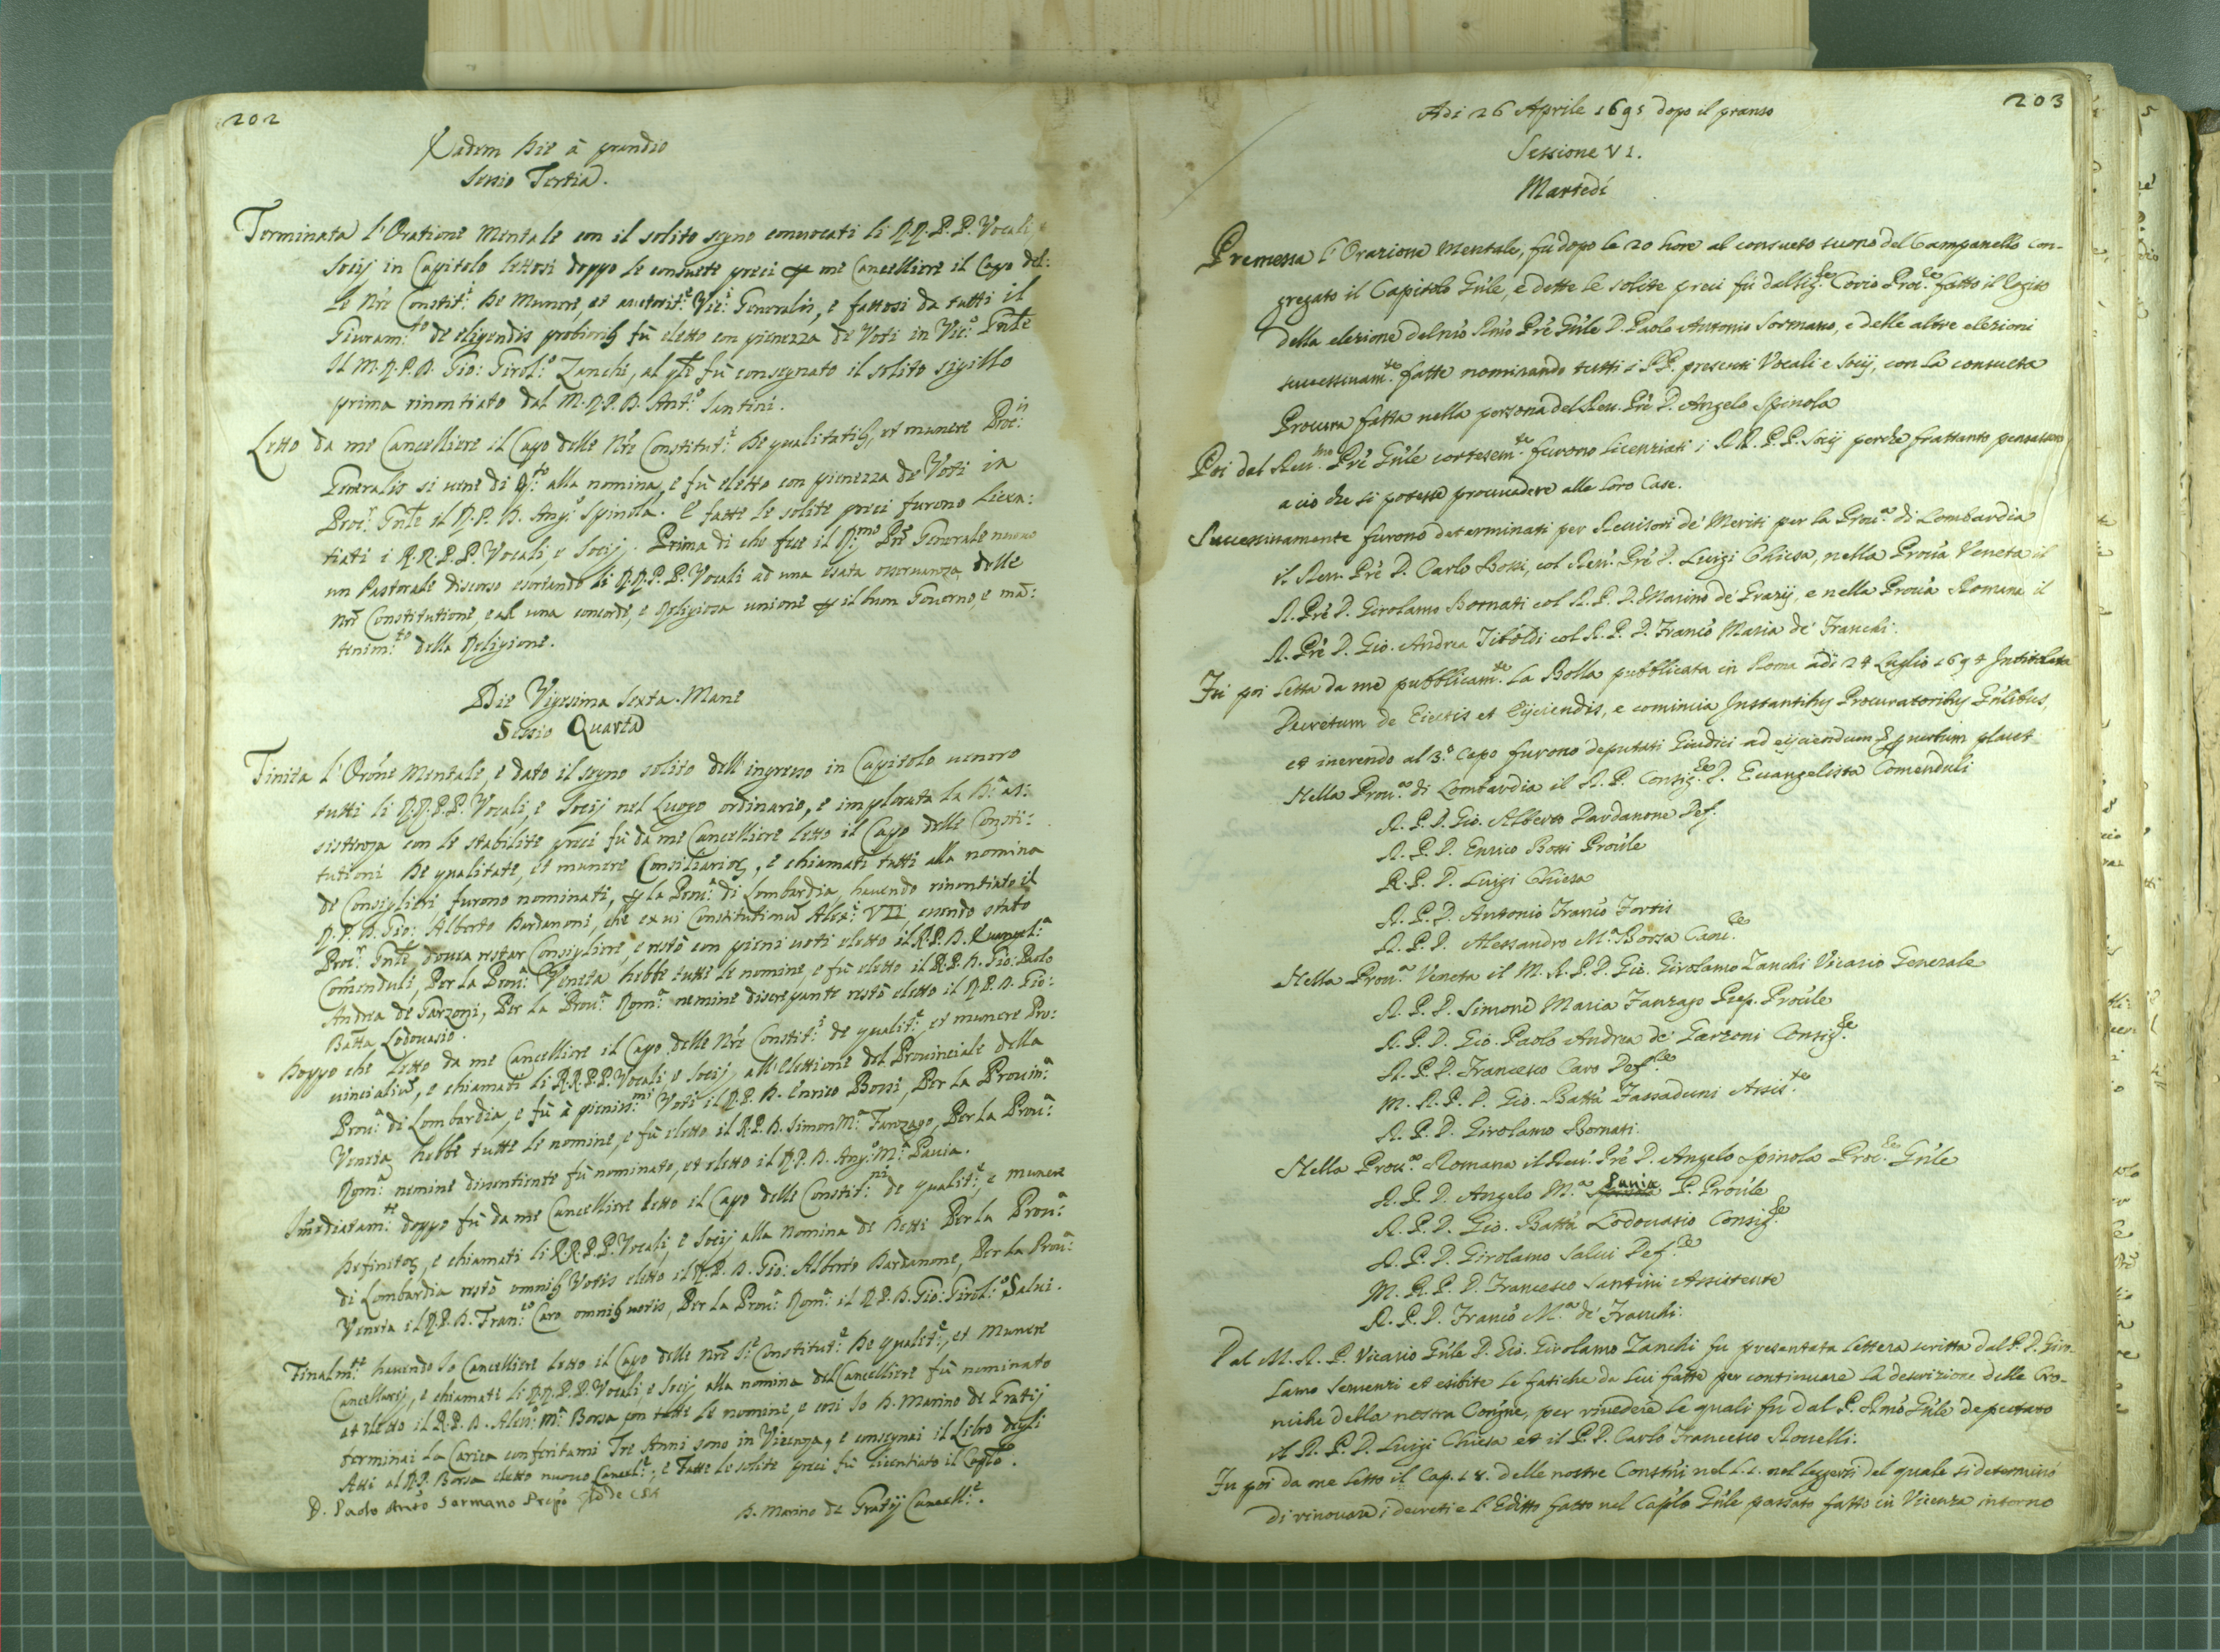 202
Eadem Die à prandio
Sessio Tertia.
Terminata l'Oratione Mentale con il solito segno convocati li R.R.P.P. Vocali, e
Socij in Capitolo lettosi doppo le consuete preci per me Cancelliere il Capo del:
le Nr̃e Constit.i De Munere, et autorit.e Vic.i Generalis, e fattosi da tutti il
Giuram.to de eligendis probiorib9 fù eletto con pienezza de Voti in Vic.o Gn̄le
Il M.R.P.D. Gio: Girol.o Zanchi, al qle fù consegnato il solito sigillo
prima rinontiato dal M.R.P.D. Ant.o Santini.
Letto da me Cancelliere il Capo delle Nr̃e Constitut.i De qualitatib9, et munere Proc.is
Generalis si uene di q.to alla nomina, e fù eletto con pienezza de Voti in
Proc.r Gn̄le il R.P.D. Ang.o Spinola. E fatte le solite preci furono licen:
tiati i R.R.P.P. Vocali, e Socij. Prima di che fece il R.mo Pr̃e Generale nuouo
un Pastorale discorso esortando li R.R.P.P. Vocali ad una esata osseruanza delle
Nr̃e Constitutione, e ad una concorde, e Religiosa unione per il buon Gouerno, e mã:
tenim.to della Religione.
Die Vigesima Sexta. Mane
Sessio Quarta
Finita l'Orõne Mentale, e dato il segno solito dell'ingresso in Capitolo uenero
tutti li R.R.P.P. Vocali, e Socij nel Luogo ordinario, e implorata la D.a as:
sistenza con le stabilite preci fù da me Cancelliere letto il Capo delle Consti:
tutioni De qualitate, et munere Consiliarior, e chiamati tutti alla nomina
de Consiglieri furono nominati, per la Prou.a di Lombardia, hauendo rinontiato il
R.P.D. Gio: Alberto Dardanoni, che ex ui Constitutionũ Alex.i VII, essendo stato
Proc.r Gn̄le doueua restar Consigliere, e restò con pieni uoti eletto il R.P.D. Euangel.a
Comenduli, Per la Prou.a Veneta hebbe tutte le nomine, e fù eletto il R.P.D. Gio: Paolo
Andrea de Garzoni, Per la Prou.a Rom.a nemine discrepante restò eletto il R.P.D. Gio:
Batta Lodouasio.
Doppo che letto da me Cancelliere il Capo delle Nr̃e Constit.i de qualit.e, et munere Pro:
uincialiũ, e chiamati li R.R.P.P. Vocali, e Socij, all'Elettione del Prouinciale della
Prou.a di Lombardia, e fù à pieniss.mi Voti il R.P.D. Enrico Bossi, Per la Prouin.a
Veneta hebbe tutte le nomine, e fù eletto il R.P.D. Simon M.a Fanzago, Per la Prou.a
Rom.a nemine disentiente fù nominato, et eletto il R.P.D. Ang.o M.a Pauia.
Imediatam.te doppo fù da me Cancelliere letto il Capo delle Constit.ni de qualit.e, e munere
Definitor, e chiamati li R.R.P.P. Vocali, e Socij alla nomina de Detti Per la Prou.a
di Lombardia restò omnib9 Votis eletto il R.P.D. Gio: Alberto Dardanone, Per la Prou.a
Veneta il R.P.D. Fran.co Caro omnib9 uotis, Per la Prou.a Rom.a il R.P.D. Gio: Girol.o Salui.
Finalm.te hauendo Io Cancelliere letto il Capo delle Nr̃e S.e Constitut.e De qualit.e, et Munere
Cancellarij, e chiamati li R.R.P.P. Vocali, e Socij alla nomina del Cancelliere fù nominato
et eletto il R.P.D. Aless.o M.a Borsa con tutte le nomine, e così Io D. Marino de Gratij
terminai la Carica conferitami Tre Anni sono in Vicenza, e consegnai il Libro degli
Atti al R.P. Borsa eletto nuouo Cancel.e, e Fatte le solite preci fù licentiato il Capło.
D. Paolo Anto Sormano Prep̃o
D. Marino de Gratij Cancell.e.
203
Adi 26 Aprile 1695 dopo il pranso
Sessione VI.
Martedí
Premessa l'Orazione Mentale, fù dopo le 20 hore al consueto suono del Campanello con-
gregato il Capitolo Gñle, e dette le solite preci fù dal Sig.re Covio Proc.re fatto il Rogito
della elezione del nr̃o Rmo Prẽ Gñle D. Paolo Antonio Sormano, e delle altre elezioni
successiuam.te fatte nominando tutti i PP. presenti Vocali e Socij, con la consueta
Procura fatta nella persona del Reu. Prẽ D. Angelo Spinola
Poi dal Reu.mo Prẽ Gñle cortesem.te furono licenziati i RR.PP. Socij perche frattanto pensassero
a ciò che si potesse prouuedere alle loro Case.
Successiuamente furono determinati per Reuisori de' Meriti per la Prou.a di Lombardia
il Reu. Prẽ D. Carlo Bossi, col Reu. Prẽ D. Luigi Chiesa, nella Prou.a Veneta il
R. Prẽ D. Girolamo Bornati col R.P.D. Marino de Grazij, e nella Prou.a Romana il
R. Prẽ D. Gio. Andrea Tiboldi col R.P.D. Franc̃o Maria de' Franchi.
Fù poi letta da me pubblicam.te la Bolla pubblicata in Roma adi 24 Luglio 1694 Intitolata
Decretum de Eiectis et Eijciendis, e comincia Instantib9 Procuratorib9 Gñlibus,
et inerendo al 3.o capo furono deputati Giudici ad eijciendum
Nella Prou.a di Lombardia il R.P. Consig.re D. Euangelista Comenduli
R.P.D. Gio. Alberto Dardanone Def.
R.P.D. Enrico Bossi Prou̇le
R.P.D. Luigi Chiesa
R.P.D. Antonio Franc̃o Fortis
R.P.D. Alessandro M.a Borsa Canc.re
Nella Prou.a Veneta il M.R.P.D. Gio. Girolamo Zanchi Vicario Generale
R.P.D. Simone Maria Fanzago Prep. Prou̇le
R.P.D. Gio. Paolo Andrea de' Garzoni Consig.re
R.P.D. Francesco Caro Def.re
M.R.P.D. Gio. Batta Fassadoni Assis.te
R.P.D. Girolamo Bornati.
Nella Prou.a Romana il Reu. Prẽ D. Angelo Spinola Proc.re Gñle
R.P.D. Angelo M.a Pauia P. Prou̇le
R.P.D. Gio. Batta Lodouasio Consig.re
R.P.D. Girolamo Salui Def.re
M.R.P.D. Francesco Santini Assistente
R.P.D. Franc̃o M.a de' Franchi.
Dal M.R.P. Vicario Gñle D. Gio. Girolamo Zanchi fu presentata lettera scritta dal P.D. Giro-
lamo Semenzi et esibite le fatiche da lui fatte per continuare la descrizione delle Cro-
niche della nostra Congne, per riuedere le quali fù dal P. Rmo Gñle deputato
il R.P.D. Luigi Chiesa et il P.D. Carlo Francesco Rouelli.
Fu poi da me letto il Cap. 18. delle nostre Constni nel L.2. nel leggersi del quale si determinò
di rinouare i decreti e l'Editto fatto nel Caplo Gñle passato fatto in Vicenza intorno